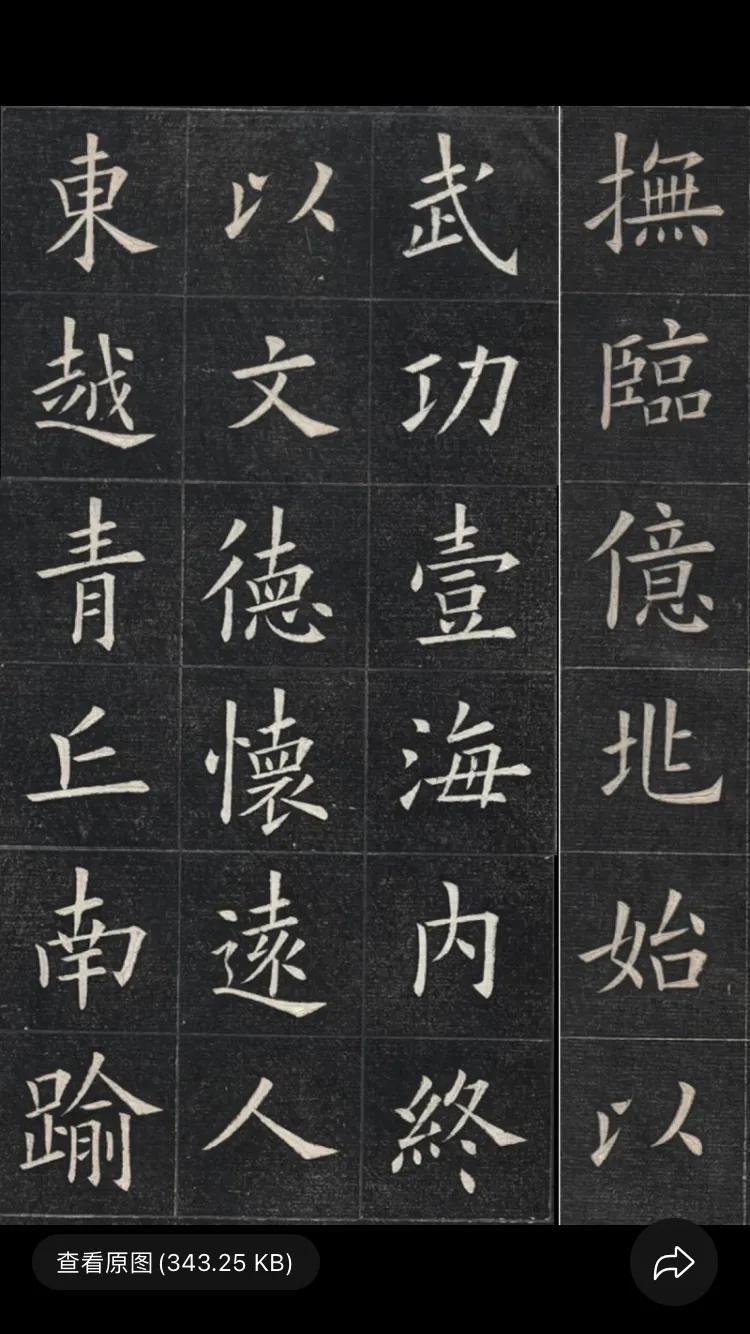 撫臨億兆始以
武功壹海內終
以文德懷遠人
東越青丘南踰
查看原图(343.25 KB)